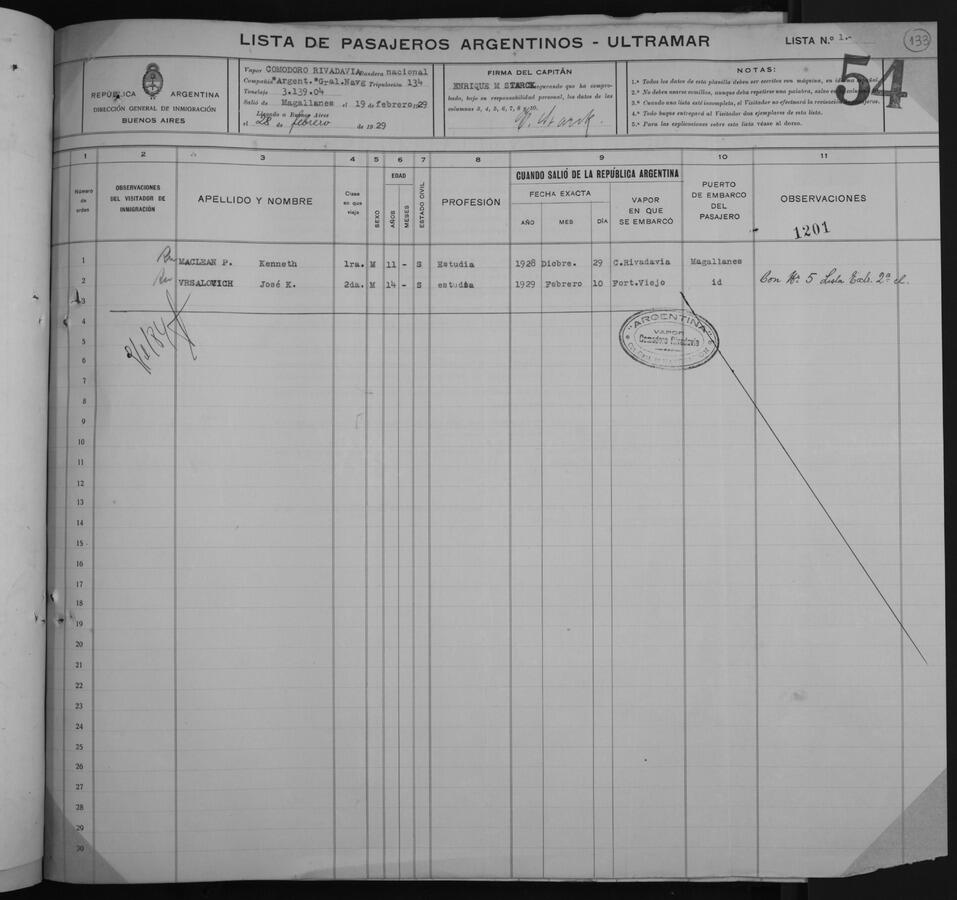 LISTA DE PASAJEROS ARGENTINOS - ULTRAMAR
LISTA N.º 1.-
133
54
REPÚBLICA ARGENTINA
DIRECCIÓN GENERAL DE INMIGRACIÓN
BUENOS AIRES
Vapor COMODORO RIVADAVIA Bandera nacional
Compañía "Argent."Gral.Navg Tripulación 134
Tonelaje 3.139.04
Salió de Magallanes el 19 de febrero 1929
Llegado a Buenos Aires
el 28 de febrero de 1929
FIRMA DEL CAPITÁN
ENRIQUE M STARCK asegurando que ha compro-
bado, bajo su responsabilidad personal, los datos de las
columnas 3, 4, 5, 6, 7, 8 y 10.
NOTAS:
1.ª Todos los datos de esta planilla deben ser escritos con máquina, en idioma español.
2.ª No deben usarse comillas, aunque deba repetirse una palabra, salvo en
3.ª Cuando una lista esté incompleta, el Visitador no efectuará la revisación
4.ª Todo buque entregará al Visitador dos ejemplares de esta lista.
5.ª Para las explicaciones sobre esta lista véase al dorso.
1 2 3 4 5 6 7 8 9 10 11
Número de orden
OBSERVACIONES DEL VISITADOR DE INMIGRACIÓN
APELLIDO Y NOMBRE
Clase en que viaja
SEXO
EDAD
AÑOS
MESES
ESTADO CIVIL
PROFESIÓN
CUANDO SALIÓ DE LA REPÚBLICA ARGENTINA
FECHA EXACTA
AÑO MES DÍA
VAPOR EN QUE SE EMBARCÓ
PUERTO DE EMBARCO DEL PASAJERO
OBSERVACIONES
1201
1 MACLEAN P. Kenneth 1ra. M 11 - S Estudia 1928 Dicbre. 29 C.Rivadavia Magallanes
2 VRSALOVICH José K. 2da. M 14 - S estudia 1929 Febrero 10 Fort.Viejo id Con Nº 5 Lista Extr. 2ª cl.
3
4
5
6
7
8
9
10
11
12
13
14
15
16
17
18
19
20
21
22
23
24
25
26
27
28
29
30
"ARGENTINA"
VAPOR
Comodoro Rivadavia